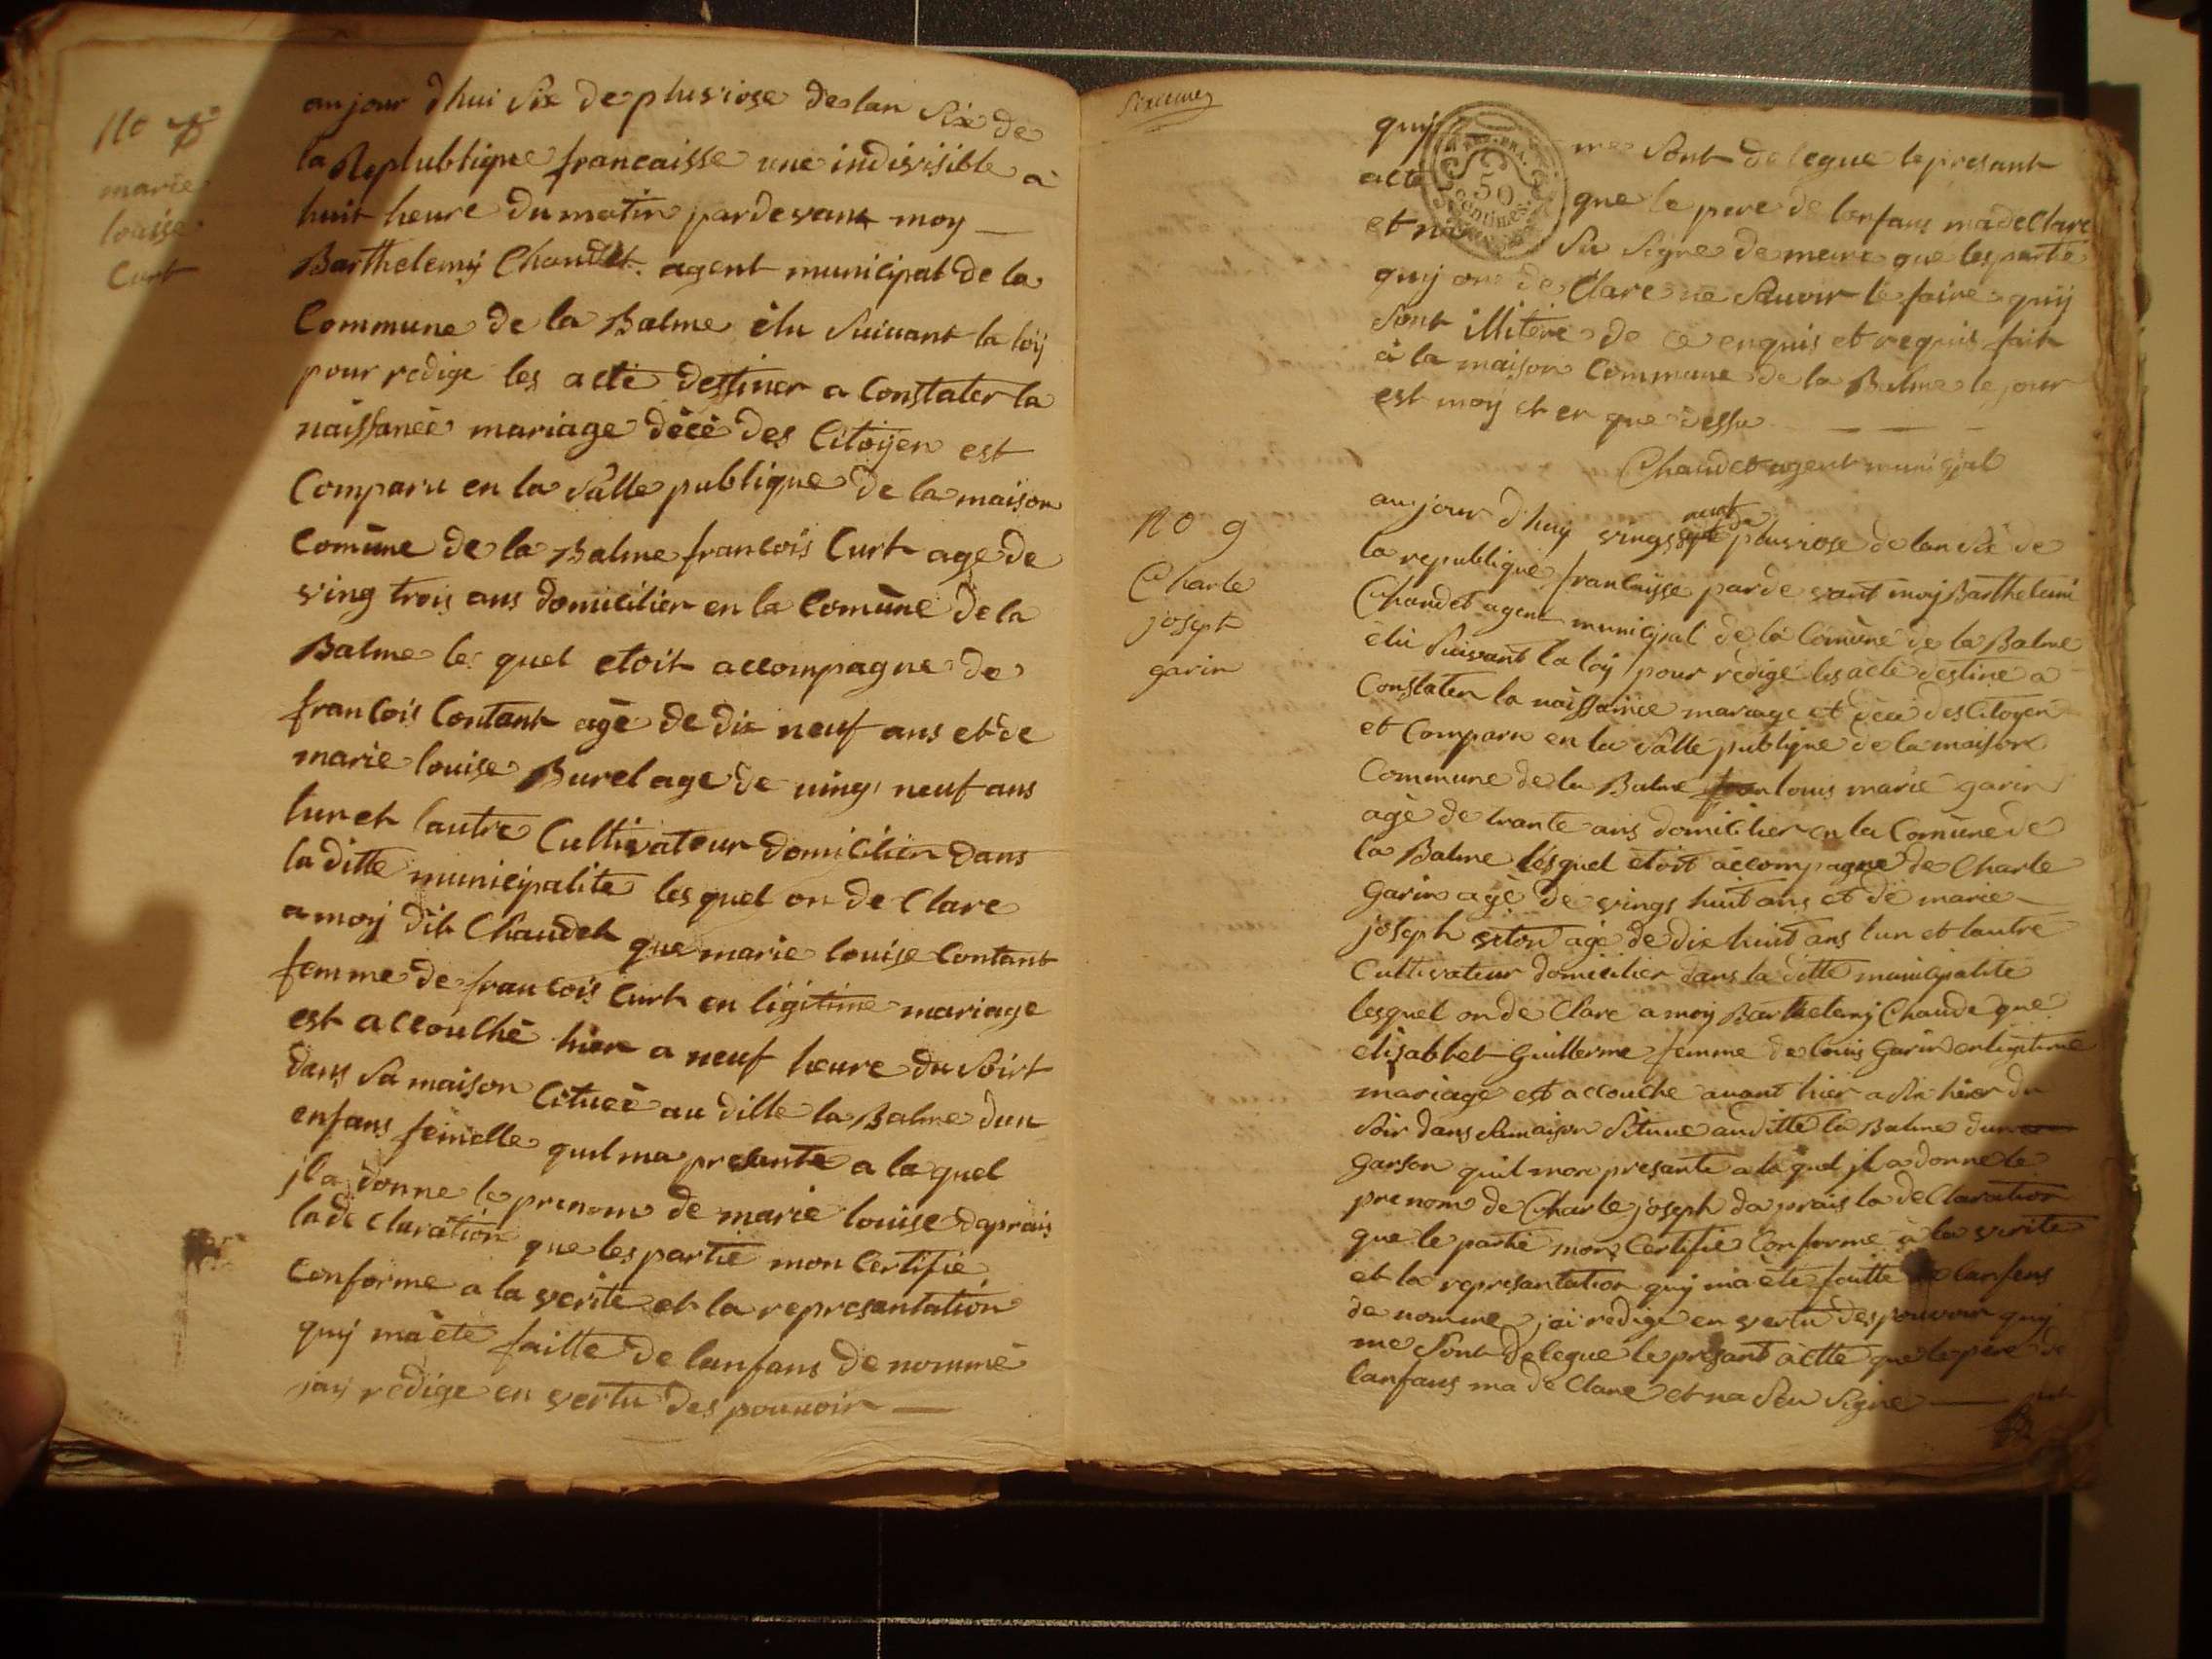 no 8
marie
louise
Curt
aujour dhui Six de plusviose de lan Six de
la Replublique francaisse une indivisible a
huit heure du matin pardevant moy
Barthelemy Chaudet agent municipal de la
Commune de la Balme élu Suivant la loy
pour redige les acte destiner a Constater la
naissance mariage décé des Citoyen est
Comparu en la Sâlle publique de la maison
Comune de la Balme francois Curt age de
ving trois ans domicilier en la Comune de la
Balme les quel etoit accompagne de
francois Contant agé de dix neuf ans et de
marie louise Burel age de ving neuf ans
lun et lautre Cultivateur domicilier dans
la ditte municipalite les quel on de Clare
a moy dit Chaudet que marie louise Contant
femme de francois Curt en ligitime mariage
est accouché hier a neuf heure du Soirt
dans Sa maison Cituéé au ditte la Balme dun
enfans femelle quil ma presante a la quel
jl a donne le prenom de marie louise daprais
la de claration que les partie mon Certifie
Conforme a la verite et la represantation
quy ma été faitte de lanfans de nommé
jai redige en vertu des pouvoir
quy me Sont delegue le presant
acte que le pere de lenfans ma de Clare
et na Su Signe de meme que les partie
quy on de Clare ne Sauvoir le faire quy
Sont illitere de ce enquis et requis fait
à la maison Commune de la Balme le jour
est moy et en que dessu
Chaudet agent municipal
no 9
Charle
joseph
garin
aujour d'huy vings neuf de pluviose de lan Six de
la republique francaisse par de vant moy Barthelemi
Chaudet agent municipal de la Comune de la Balme
élu Suivant la loy pour redigé les acte destine a
Constater la naissance mariage et décé des Citoyen
et Comparu en la Sâlle publique de la maison
Commune de la Balme louis marie garin
agé de trante ans domicilier en la Comune de
la Balme lesquel etoit accompagne de Charle
garin agé de vings huit ans et de marie
joseph agé de dix huit ans lun et lautre
Cultivateur domicilier dans la ditte municipalite
lesquel on de Clare a moy Barthelemy Chaude que
elisabbet Guillerme femme de louis Garin en ligitime
mariage est accouche avant hier a Six du
Soir dans Sa maison Situee au ditte la Balme dun
garson quil mon presante a la quel jl a donne le
prenom de Charle joseph daprais la de Claration
que le partie mon Certifie Conforme à la verite
et la represantation quy ma été faitte de lanfans
de nomme jai redige en vertu des pouvoir quy
me Sont delegue le presant actte que le pere de
lanfans ma de Clare et na Seu Signe
REP. FRA.
50
centimes